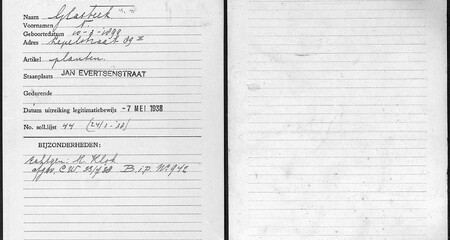 Naam Glasbeek
Voornamen
Geboortedatum
Adres Lepelstraat 89 II
Artikel planten.
Staanplaats JAN EVERTSENSTRAAT
Gedurende
Datum uitreiking legitimatiebewijs -7 MEI 1938
No. soll.lijst 44 (24/1-'38)
BIJZONDERHEDEN:
M. Klok
C.W. 33/9 38 B.i.P. No 942